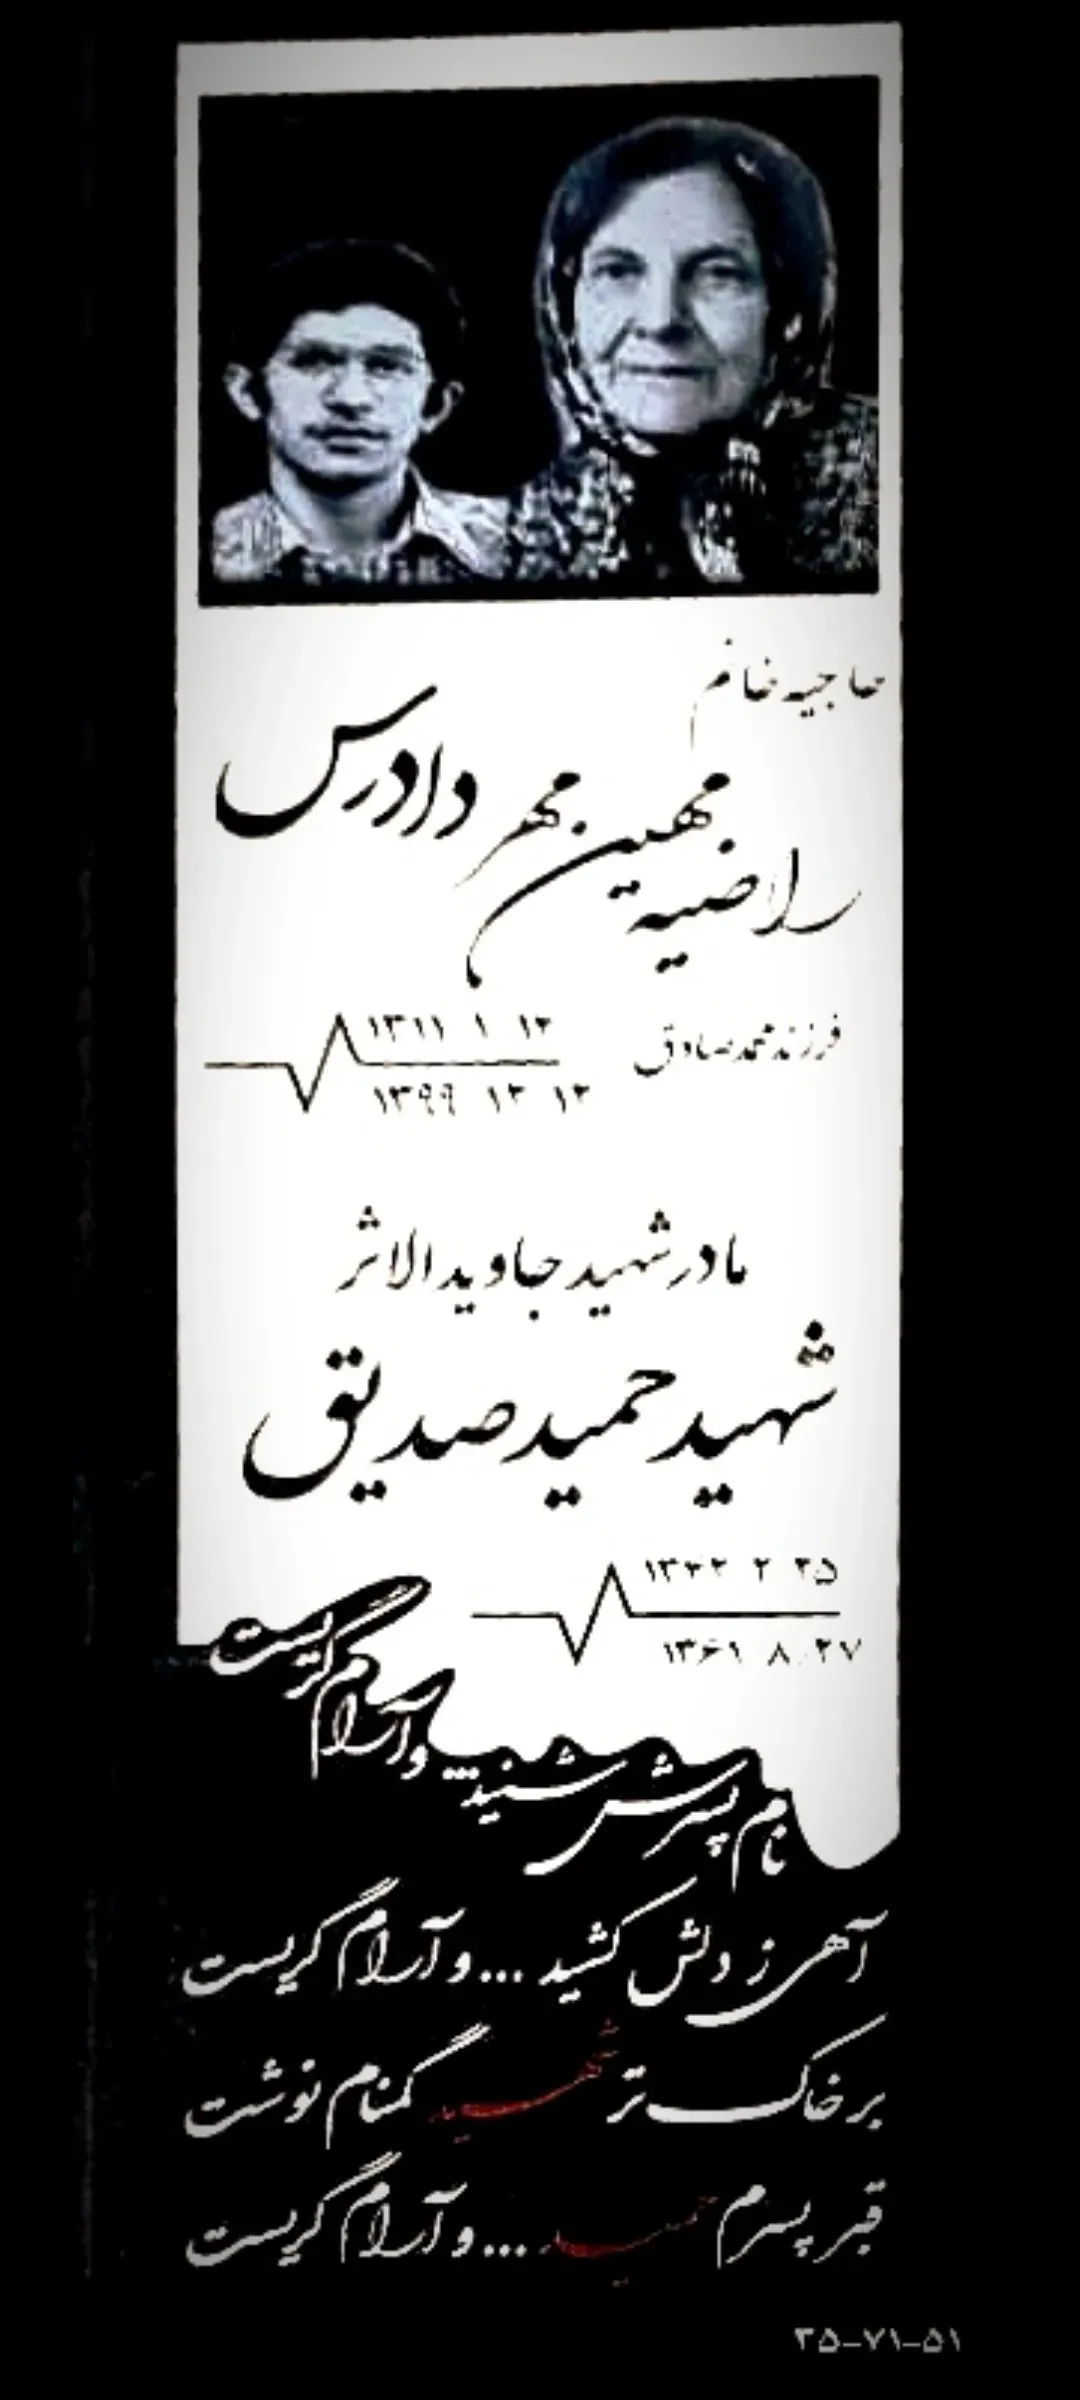 حاجیه خانم
راضیه مهین مهر دادرس
فرزند محمدصادق
۱۳۱۱ ۱ ۱۲
۱۳۹۹ ۱۲ ۱۲
مادر شهید جاوید الاثر
شهید حمید صدیق
۲ ۲۵
۱۳۶۱ ۸ ۲۷
نام پسرش شنید ... و آرام گریست
آهی ز دلش کشید ... و آرام گریست
بر خاک تر شهید گمنام نوشت
قبر پسرم حمید ... و آرام گریست
۲۵-۷۱-۵۱